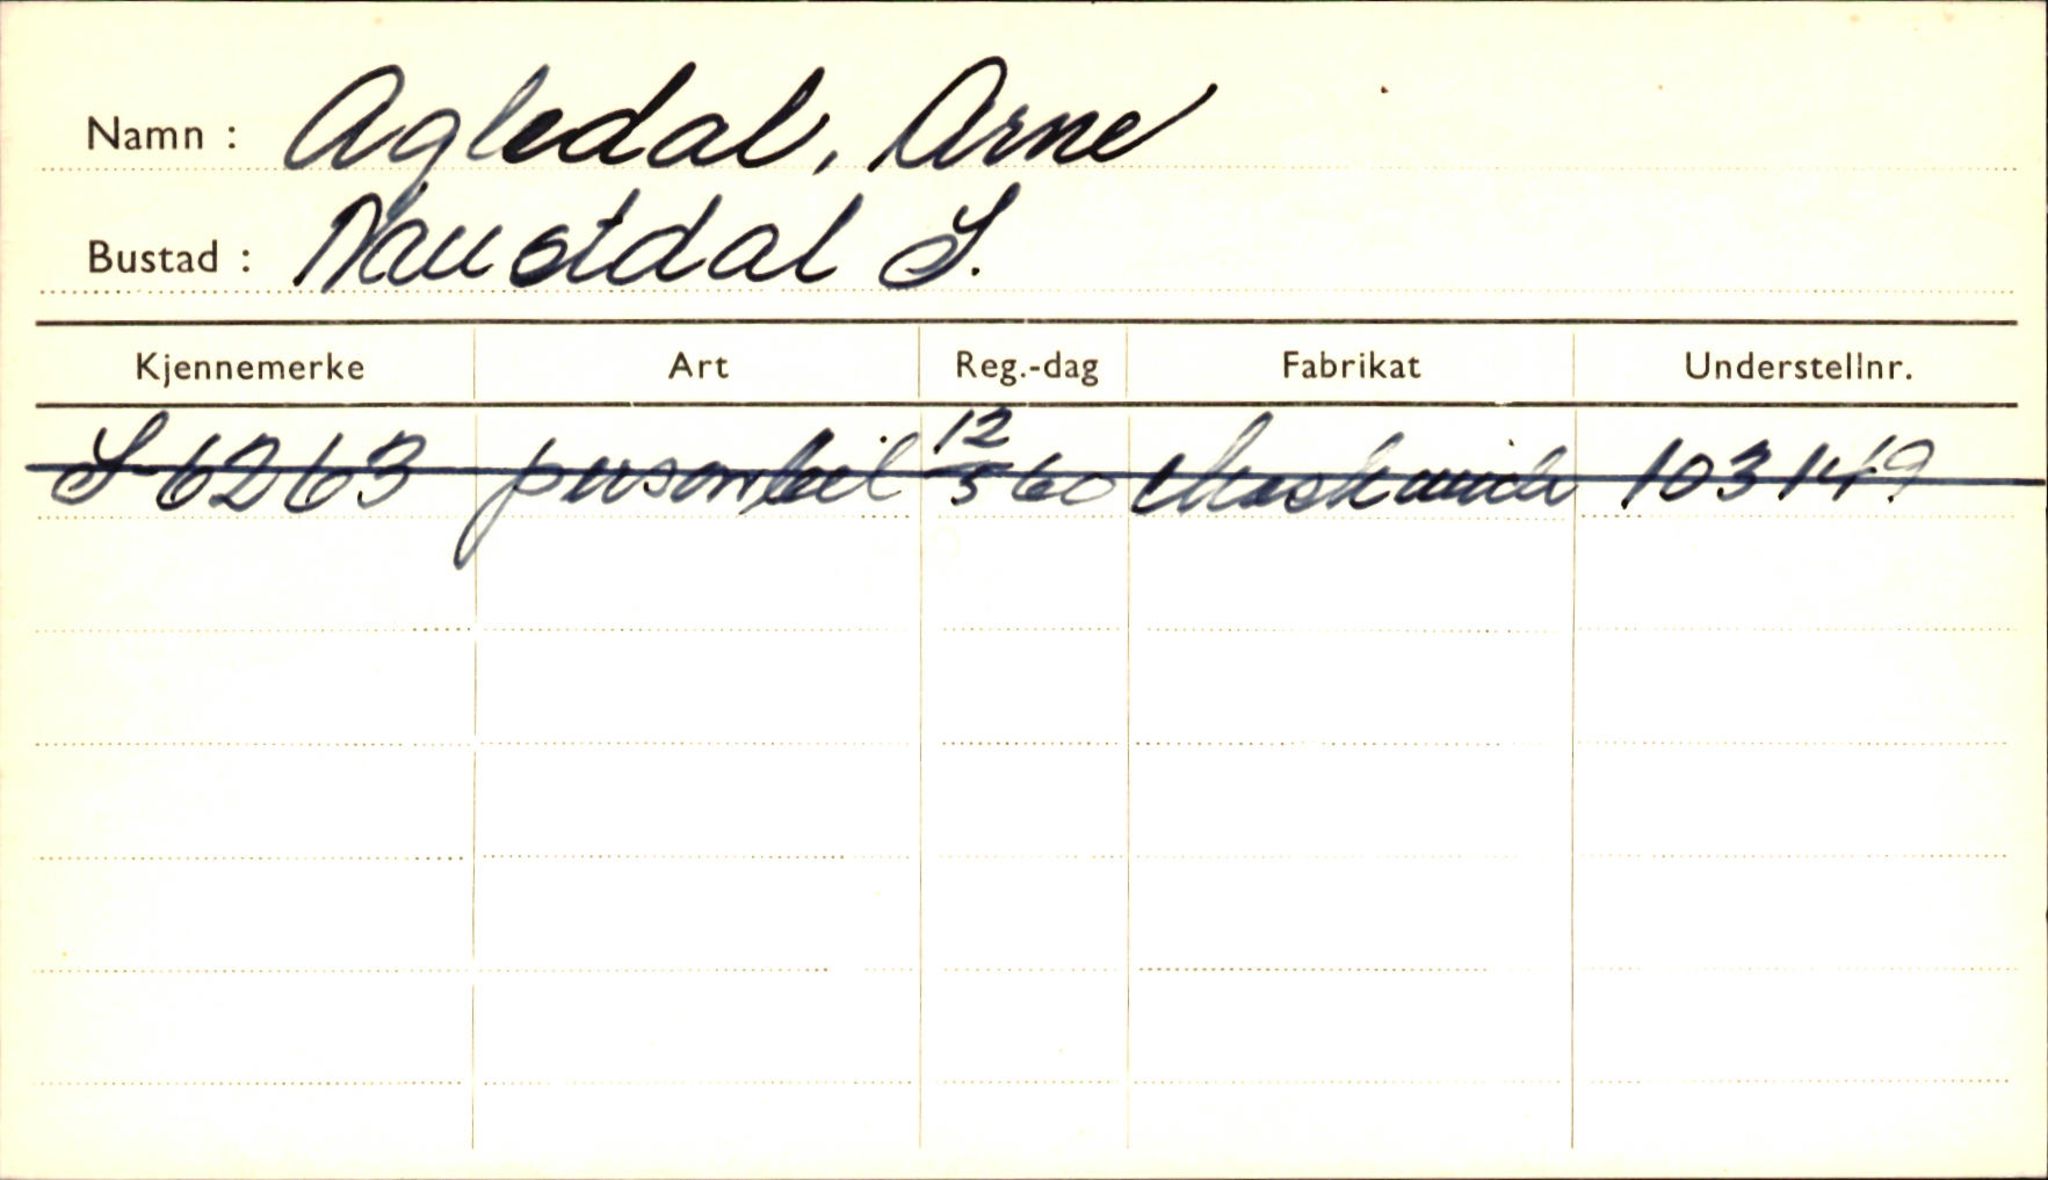 Namn : Agledal, Arne
Bustad : Naustdal S.
Kjennemerke Art Reg.-dag Fabrikat Understellnr.
S-6263 personbil 12/5 60 Moskwich 103149